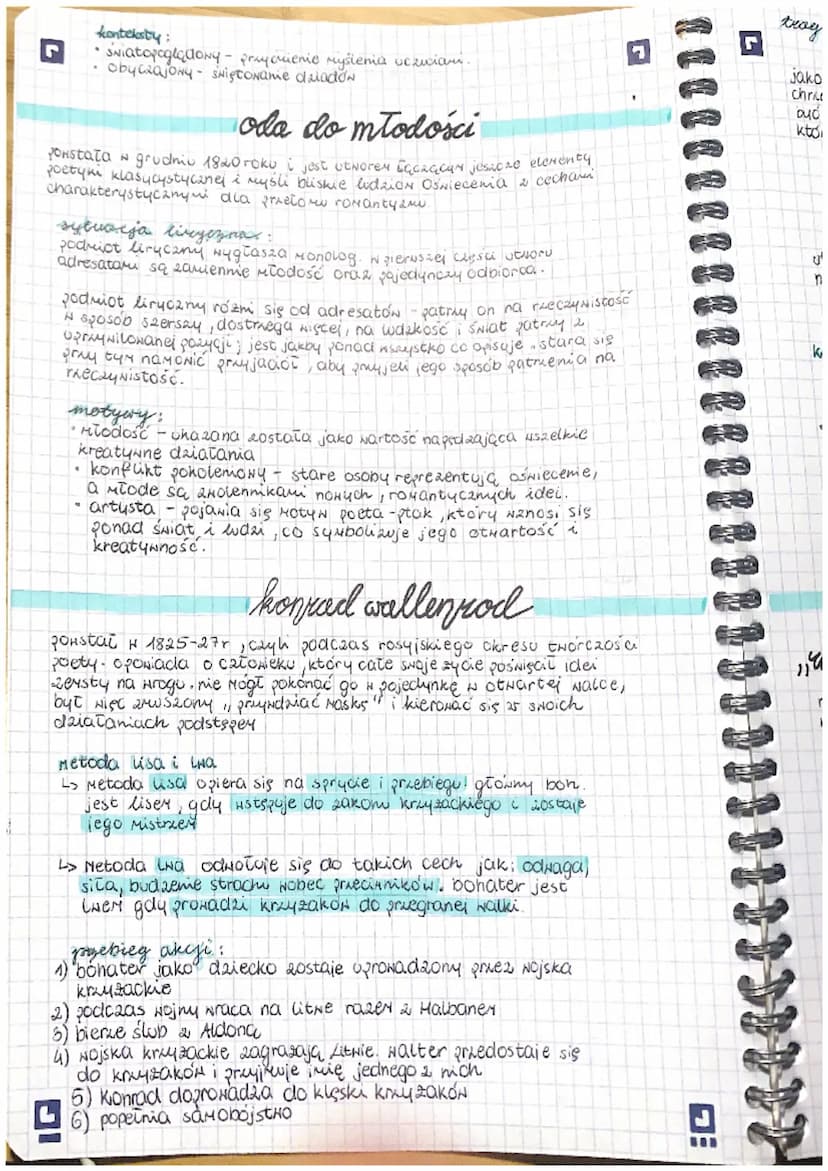 konteksty:
• światopoglądowy - przyćmienie myślenia uczuciami.
• obyczajowy - świętowanie dziadów
oda do młodości
powstała w grudniu 1820 roku i jest utworem łączącym jeszcze elementy
poetyki klasycystycznej i myśli bliskie ludziom Oświecenia z cechami
charakterystycznymi dla przełomu romantyzmu
sytuacja liryczna:
podmiot liryczny wygłasza monolog. w pierwszej części utworu
adresatami są zamiennie młodość oraz pojedynczy odbiorca.
podmiot liryczny różni się od adresatów - patrzy on na rzeczywistość
w sposób szerszy, dostrzega więcej, na ludzkość i świat patrzy z
uprzywilowanej pozycji; jest jakby ponad wszystko co opisuje. stara się
przy tym namówić przyjaciół, aby przyjęli jego sposób patrzenia na
rzeczywistość.
motywy:
• młodość - ukazana została jako wartość napędzająca wszelkie
kreatywne działania
• konflikt pokoleniowy - stare osoby reprezentują oświecenie,
a młode są zwolennikami nowych, romantycznych idei.
• artysta - pojawia się motyw poeta-ptak, który wznosi się
ponad świat i ludzi, co symbolizuje jego otwartość i
kreatywność.
konrad wallenrod
powstał w 1825-27r, czyli podczas rosyjskiego okresu twórczości
poety. opowiada o człowieku, który całe swoje życie poświęcił idei
zemsty na wrogu. nie mógł pokonać go w pojedynkę w otwartej walce,
był więc zmuszony „przywdziać maskę" i kierować się w swoich
działaniach podstępem
metoda lisa i lwa
↳ metoda lisa opiera się na sprycie i przebiegu! główny boh.
jest lisem, gdy wstępuje do zakonu krzyżackiego i zostaje
jego mistrzem
↳ metoda lwa odwołuje się do takich cech jak: odwaga,
siła, budzenie strachu wobec przeciwników. bohater jest
lwem gdy prowadzi krzyżaków do przegranej walki.
przebieg akcji:
1) bohater jako dziecko zostaje uprowadzony przez wojska
krzyżackie
2) podczas wojny wraca na litwę razem z Halbanem
3) bierze ślub z Aldoną
4) wojska krzyżackie zagrażają Litwie. Walter przedostaje się
do krzyżaków i przyjmuje imię jednego z nich
5) Konrad doprowadza do klęski krzyżaków
6) popełnia samobójstwo
jako